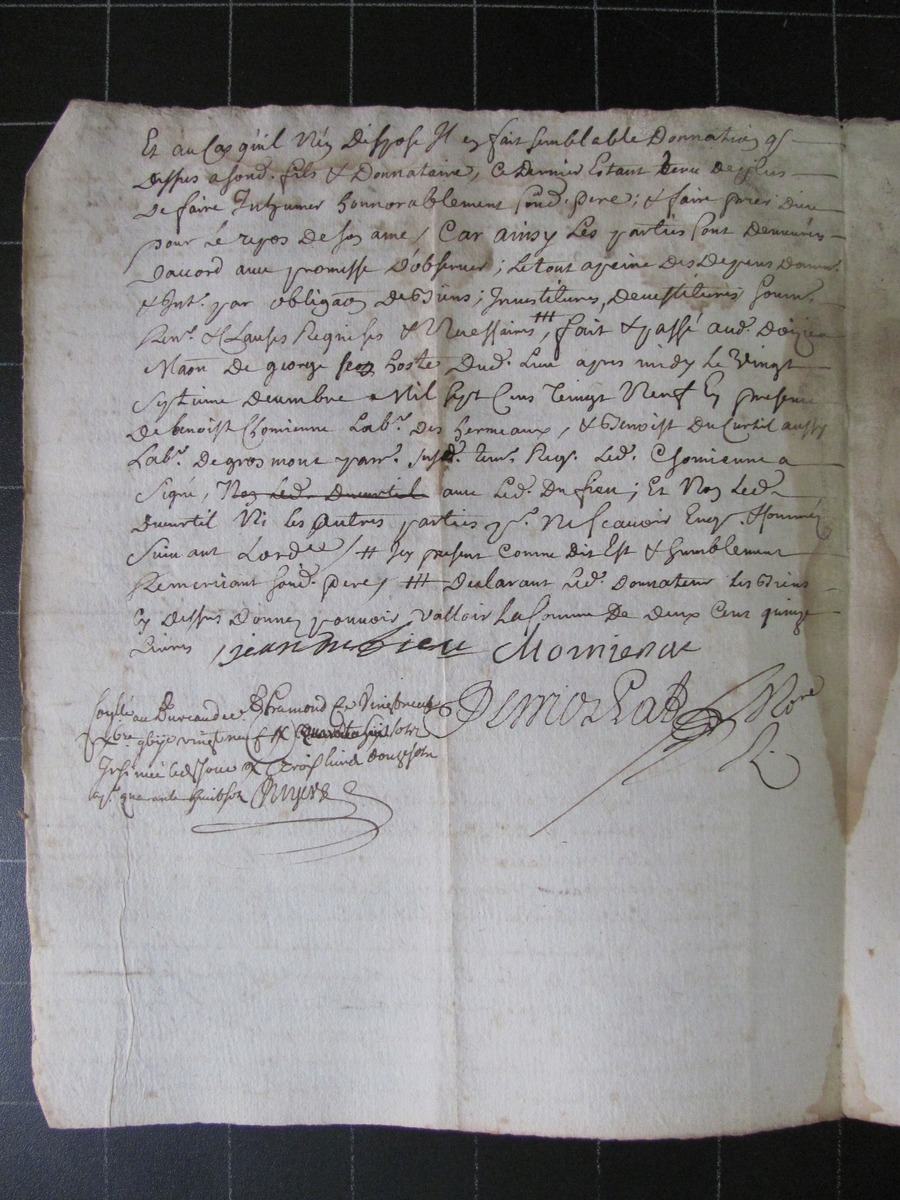 Et au Cas qu'il N'en Dispose Il en fait semblable Donnation q
dessus a sond. fils & Donnataire, Ce Dernier Estant tenu de plus
de faire Inhumer honnorablement sond. pere; & faire prier dieu
pour Le repos de son ame, Car ainsy Les parties sont Demeurées
d'accord avec promesse D'observer; Le tout a peine des Depens dom.
& Int. par obligaon De Biens; Investitures, Devestitures soum.
Ren. & Clauses Requises & Necessaires, ⧣ fait & passé aud.
Maon De george hoste Dud. Lieu apres midy Le Vingt
Septieme Decembre Mil Sept Cens Vingt Neuf En presence
De benoist Chomienne Labr. des hermeaux, & Benoist Du Curtil aussy
Labr. De grosmont parr. susd. tem. Req. Led. Chomienne a
Signé, Non Led. Ducurtil avec Led. Dufieu; Et Non Led.
Ducurtil Ni les Autres parties pr. Ne Scavoir Enq. & Sommés
Suivant Lorde / # Icy present Comme dit Est & humblement
Remerciant sond. pere / ⧣ Declarant Led. Donnateur Les Biens
Cy dessus Donnés pouvoir Valloir La Somme De Deux Cens quinze
Livres / jean du fieu Chomienne
Nore
R.
au Bureau de St. Chamond Ce Vingt neuf
xbre vingt neuf R quarante huit sols
Insinué led. Jour R trois livres douze sols
quarante huit sols